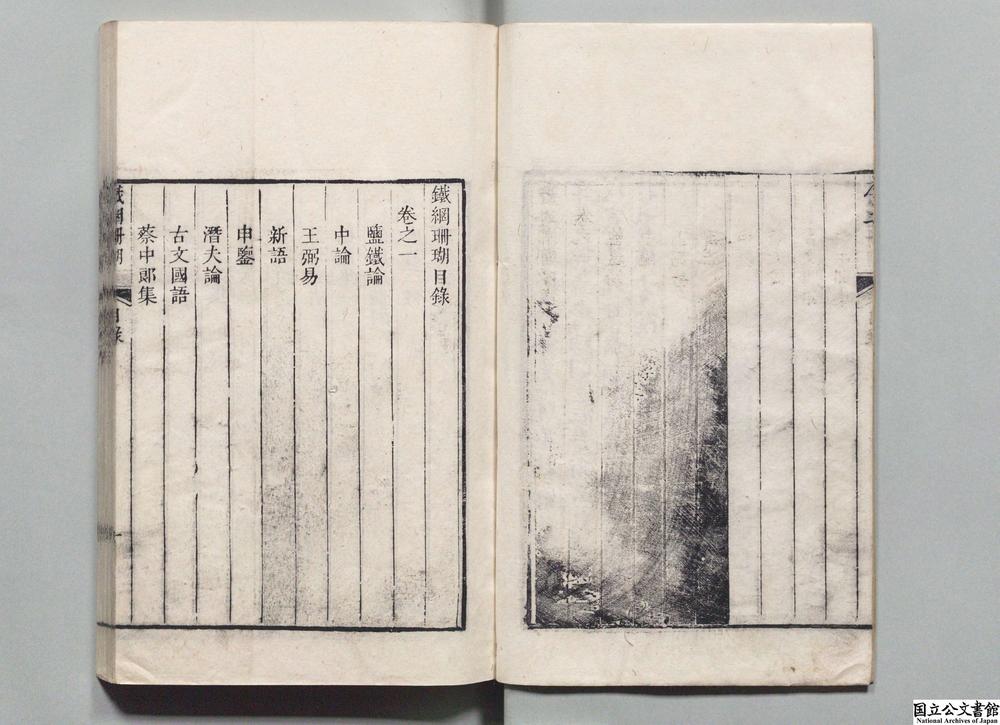 鐵綱珊瑚目錄
卷之一
鹽鐵論
中論
王弼易
新語
申鑒
潛夫論
古文國語
蔡中郎集
國立公文書館
National Archives of Japan